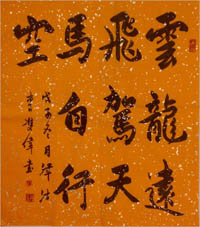 雲龍遠
飛駕天
馬自行
空
冬月
書